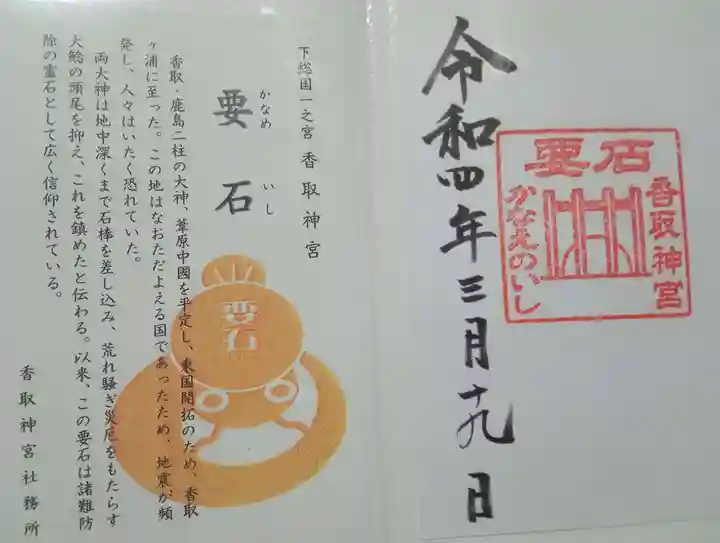 令和四年三月十九日
要石
香取神宮
かなめのいし
下総国一之宮 香取神宮
かなめ いし
要石
香取・鹿島二柱の大神、葦原中國を平定し、東国開拓のため、香取
ヶ浦に至った。この地はなおただよえる国であったため、地震が頻
発し、人々はいたく恐れていた。
両大神は地中深くまで石棒を差し込み、荒れ騒ぎ災厄をもたらす
大鯰の頭尾を抑え、これを鎮めたと伝わる。以来、この要石は諸難防
除の霊石として広く信仰されている。
香取神宮社務所
要石